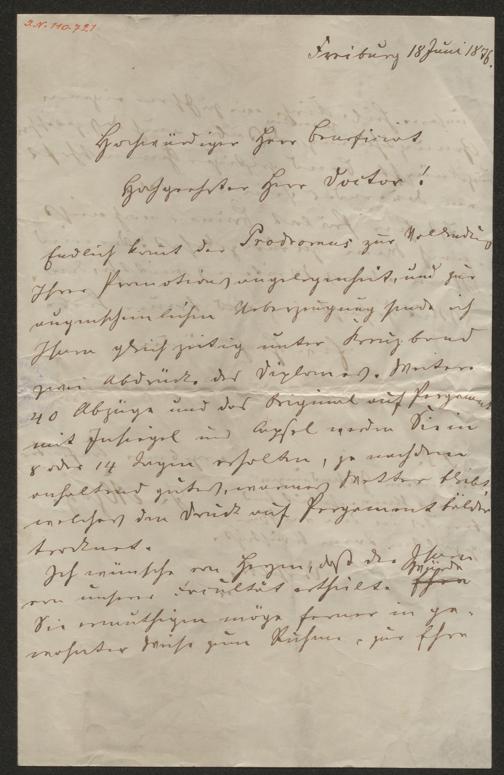 I.N. 110.721
Freiburg 18 Juni 1876.
Hochwürdiger Herr Beneficiat
Hochgeehrter Herr Doctor!
Endlich kömt der Prodromus zur Vollendung
Ihrer Promotionsangelegenheit, und zur
augenscheinlichen Ueberzeugung sende ich
Ihnen gleichzeitig unter Kreuzband
zwei Abdrücke des Diplomes. Weitere
40 Abzüge und das Original auf Pergament
mit Insiegel und Capsel werden Sie in
8 oder 14 Tagen erhalten, je nachdem
anhaltend gutes, warmes Wetter bleibt,
welches den Druck auf Pergament bälder
trocknet.
Ich wünsche von Herzen, daß die Ihnen
von unserer Facultät ertheilte Würde
Sie ermuthigen möge ferner in ge-
wohnter Weise zum Ruhme, zur Ehre